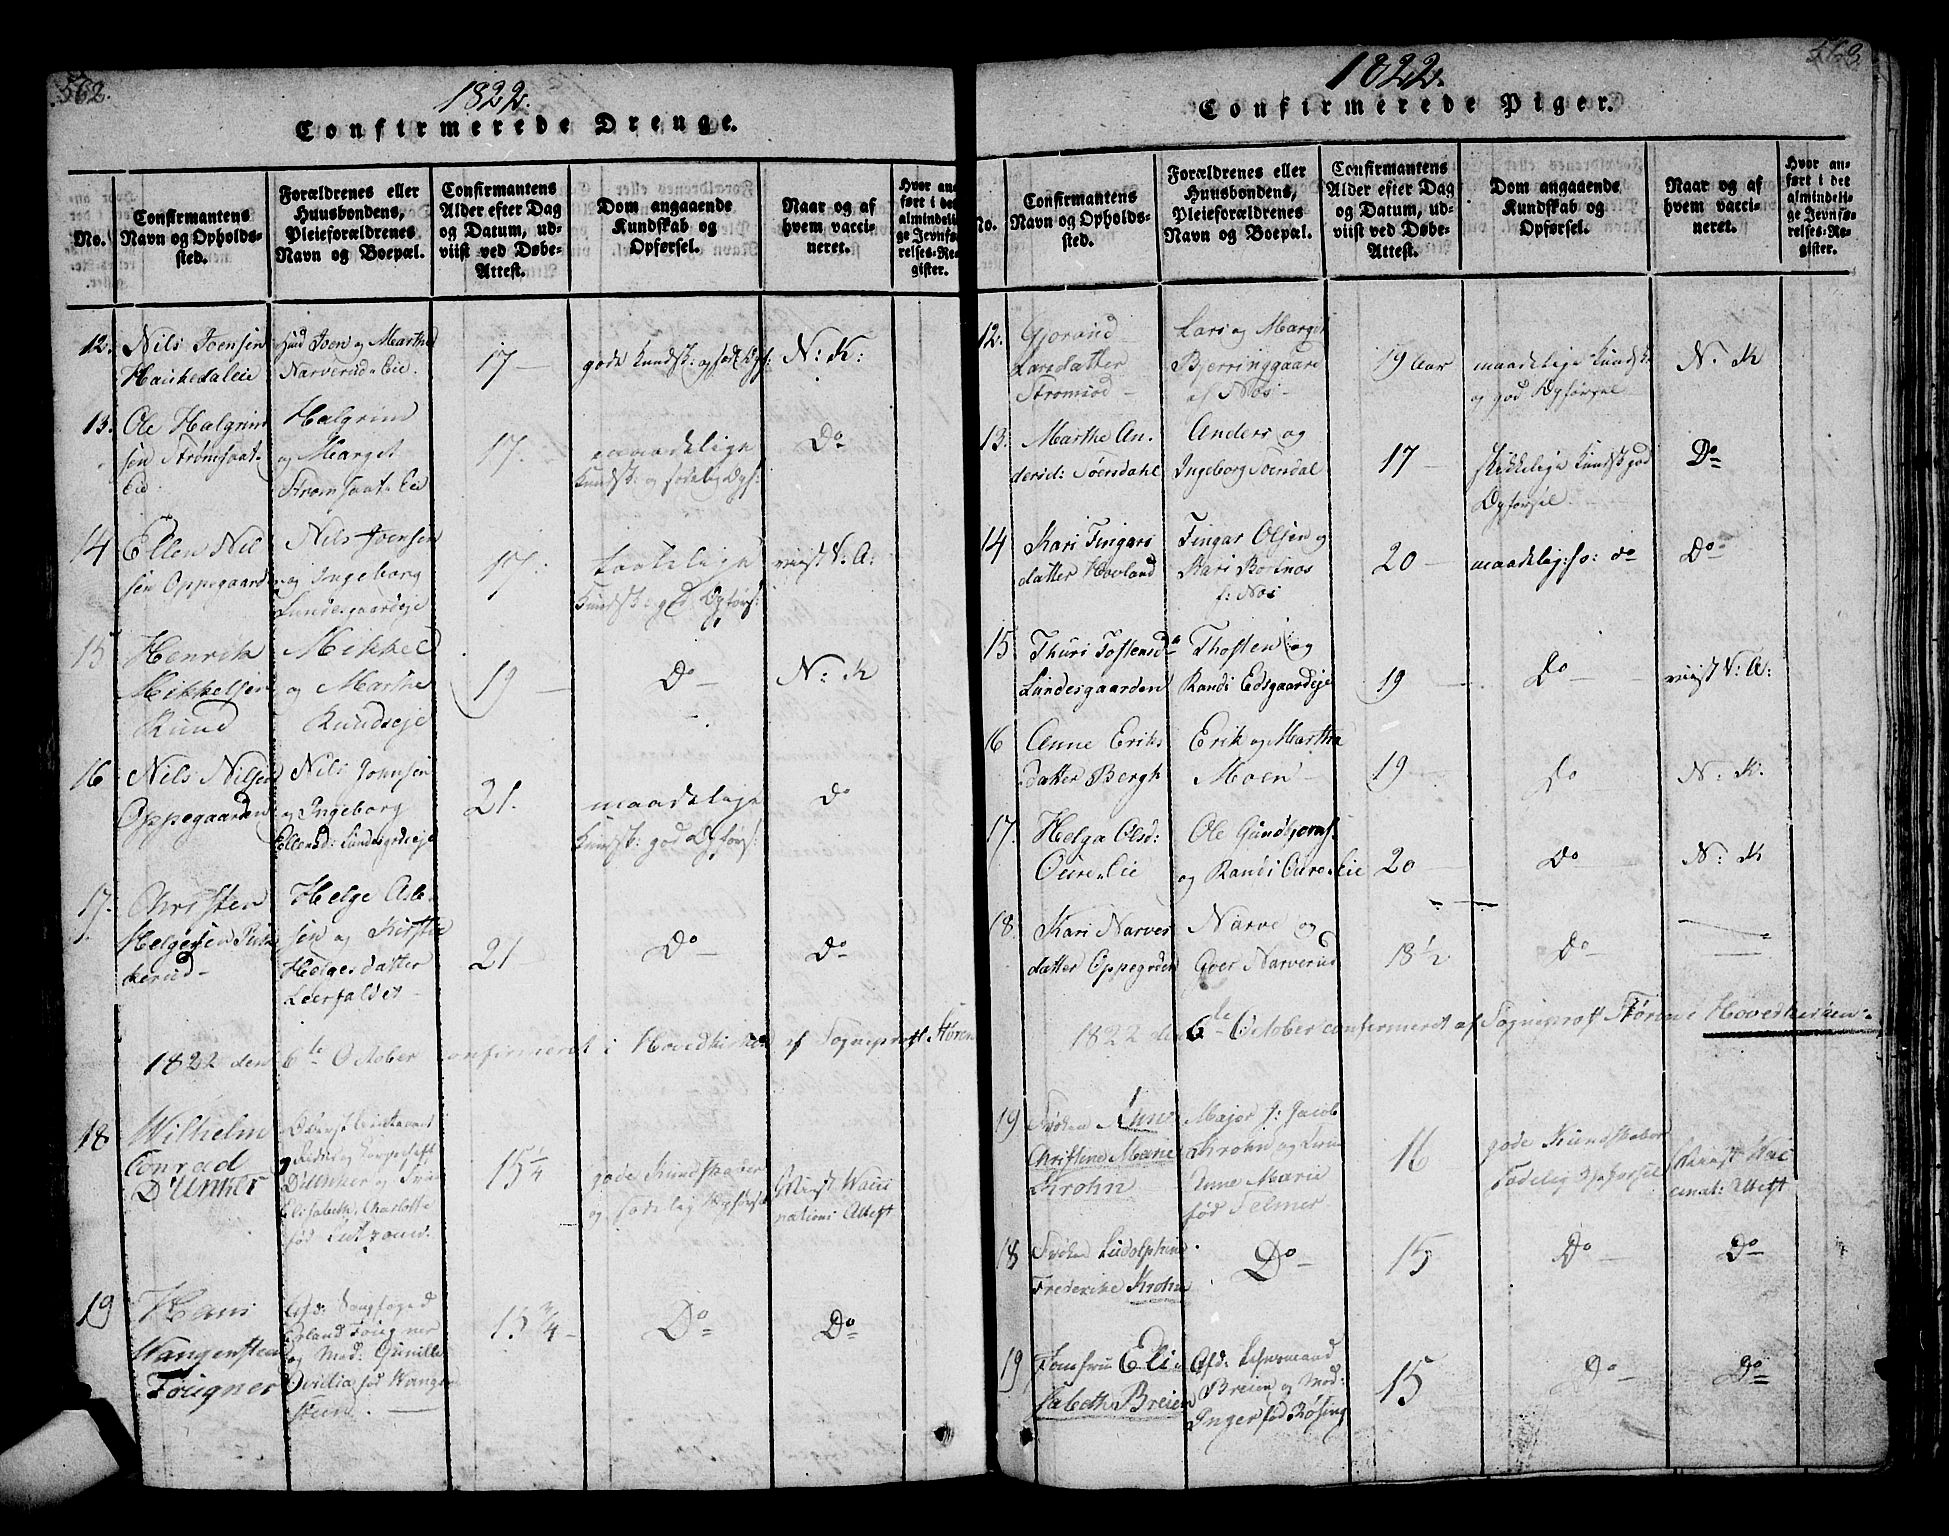 562.
1822.
Confirmerede Drenge.
No.
Confirmantens
Navn og Opholds-
sted.
Forældrenes eller
Huusbondens,
Pleieforældrenes
Navn og Boepæl.
Confirmantens
Alder efter Dag
og Datum, ud-
viist ved Døbe-
Attest.
Dom angaaende
Kundskab og
Opførsel.
Naar og af
hvem vacci-
neret.
Hvor an-
ført i det
almindeli-
ge Jevnfø-
relses-Re-
gister.
12. Nils Joensen
Haukedaleie
Joen og Marthe
Narverud Eie.
17 —
gode Kundsk: og
N: K:
13. Ole Halgrim
sen Strømsaat-
Eie
Halgrim
og Marget
Strømsaat Eie
17.
maadelige
Kundsk: og sædelig Opf:
Do
14 Ellen Nil
sen Oppegaard
Nils Joensen
og Ingeborg
Lundesgaardeje
17.
taalelige
Kundsk: god Opførs:
viist V: A:
15 Henrik
Mikkelsen
Ruud
Mikkel
og Marthe
Ruudseje
19 —
Do —
N: K
16 Nils Nilsen
Oppegaarden
Nils Johnsen
og Ingeborg
Ellensd: Lundesgrdseje
21.
maadelige
Kundsk: god Opførs:
Do
17. Christen
Helgesen
kerud —
Helge Asle-
sen og Kirstie
Helgesdatter
Leerfaldet
21 —
Do —
Do —
1822 den 6te October confirmeret i Hovedkirken af Sogneprest Støren
18 Wilhelm
Conrad
D'Unker
D'Unker og
Elisabeth Charlotte
fød
15 1/4
gode Kundskaber
og sædelig Opførsel
viist Vacci
nations Attest
19 Hans
Wangensteen
Fougner
Erland Fougner
og Mad: Gunille
Ovidia fød Wangen
steen. —
15 3/4 —
Do —
Do —
563
1822.
Confirmerede Piger.
No.
Confirmantens
Navn og Opholds-
sted.
Forældrenes eller
Huusbondens,
Pleieforældrenes
Navn og Boepæl.
Confirmantens
Alder efter Dag
og Datum, ud-
viist ved Døbe-
Attest.
Dom angaaende
Kundskab og
Opførsel.
Naar og af
hvem vacci-
neret.
Hvor an-
ført i det
almindeli-
ge Jevnfø-
relses-Re-
gister.
12. Gjorand
Larsdatter
Strømsod —
Lars og Marget
Bjerringgaard
af Nøs —
19 Aar
maadelige Kundsk
og god Opførsel
N. K
13. Marthe An-
dersd: Søendahl
Anders og
Ingeborg Søendal
17 —
skikkelige Kundsk god
Opførsel
Do
14 Kari Fingars
datter Hovland
Fingar Olsen og
Kari
f: Nøs
20 —
maadelig: so: do
Do
15 Thuri Tostensd
Lundesgaarden
Thosten og
Randi Edsgaardeje
19 —
Do —
viist V: A:
16 Anne Eriks
datter Bergh
Erik og Martha
Moen —
19
Do
N: K.
17. Helga Olsd:
Oure Eie
Ole Gundbjørns:
og Randi Oure Eie
20
Do
N: K
18. Kari Narves
datter Oppegrden
Narve og
Goer Narverud
18 1/2
Do —
1822 den 6te October confirmeret af Sogneprest Støren i Hovedkirken.
19 Frøken Anne
Christine Marie
Krohn
Major J: Jacob
Krohn og
Anne Marie
fød Telmer
16
gode Kundskaber
Sædelig Opførsel
viist Vac
cinat: Attest
18 Frøken Ludolphine
Frederikke Krohn
Do —
15
Do —
Do —
19 Jomfru Eli-
sabeth Breien
Breien og Mad:
Inger fød Røsing
15
Do —
Do